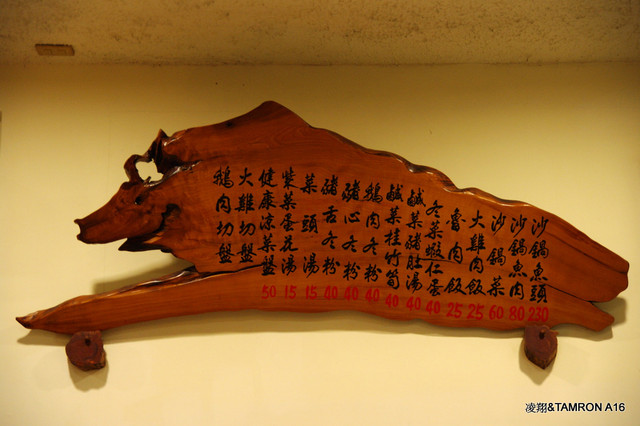 沙鍋魚頭 230
沙鍋魚肉 80
沙鍋菜 60
火雞肉飯 25
魯肉飯 25
冬菜蝦仁蛋 40
鹹菜豬肚湯 40
鹹菜桂竹筍 40
鵝肉冬粉 40
豬心冬粉 40
豬舌冬粉 40
菜頭湯 15
紫菜蛋花湯 15
健康涼菜盤 50
火雞切盤
鵝肉切盤
凌翔&TAMRON A16